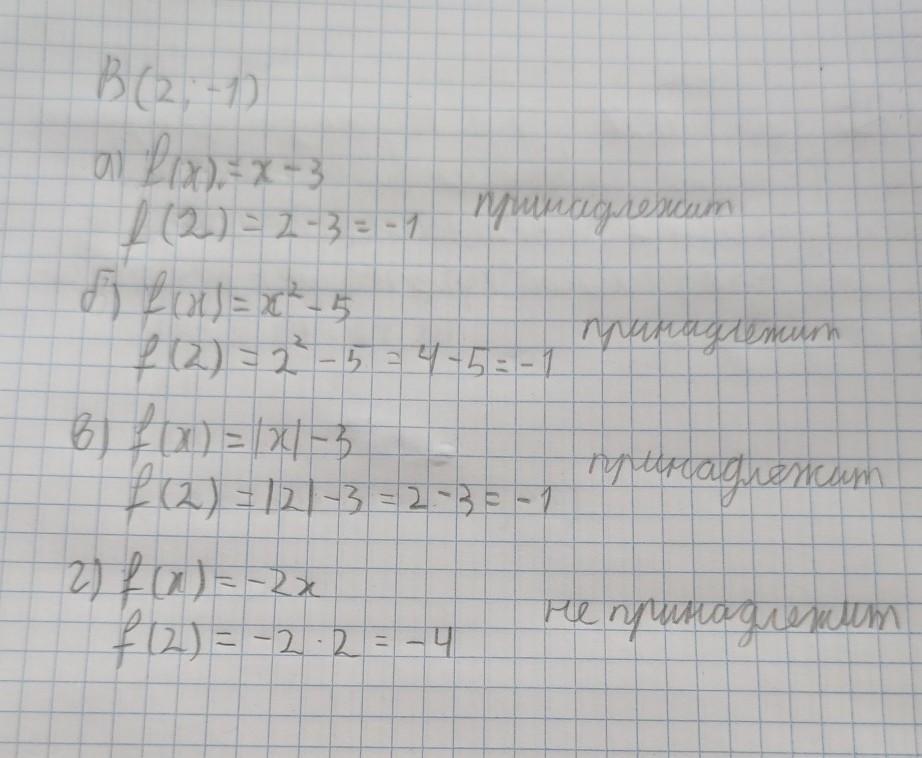 В(2; -1)
а) f(x) = x - 3
f(2) = 2 - 3 = -1 принадлежит
б) f(x) = x² - 5
f(2) = 2² - 5 = 4 - 5 = -1 принадлежит
в) f(x) = |x| - 3
f(2) = |2| - 3 = 2 - 3 = -1 принадлежит
г) f(x) = -2x
f(2) = -2 · 2 = -4 не принадлежит